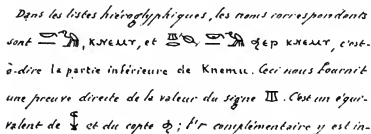 Dans les listes hiéroglyphiques, les noms correspondants
sont , κΝΕΜΥ, et ϥΕΡ κΝΕΜΥ, c'est-
à-dire la partie inférieure de Knemu. Ceci nous fournit
une preuve directe de la valeur du signe . C'est un équi-
valent de et du copte ϥ; l'r complémentaire y est in-